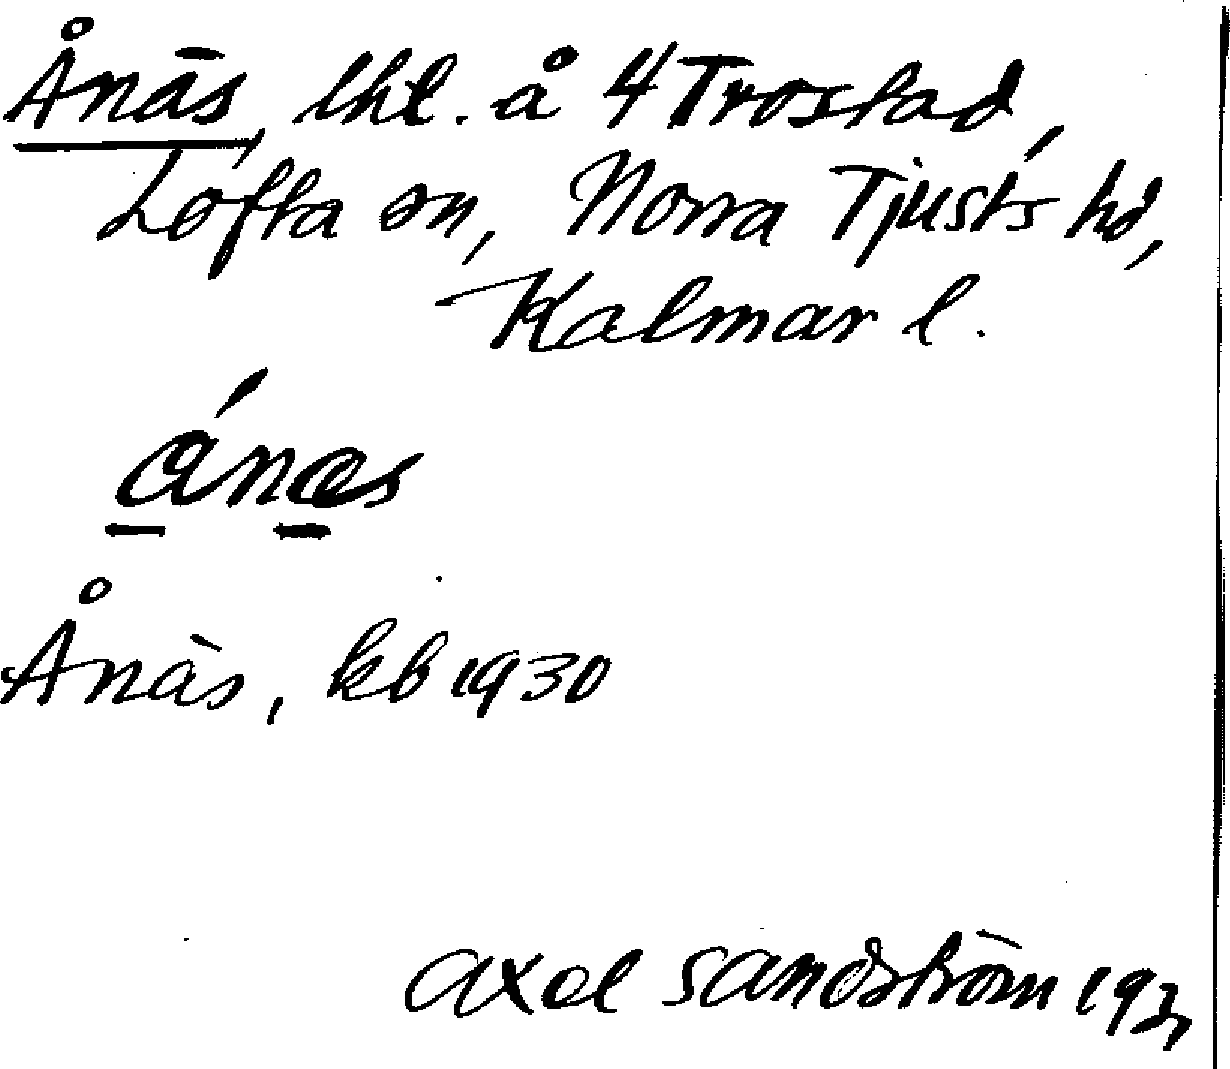 Ånäs, lht. å 4 Trostad,
Lofta sn, Norra Tjusts hd,
Kalmar l.
ánæs
Ånäs, kb 1930
Axel Sandström